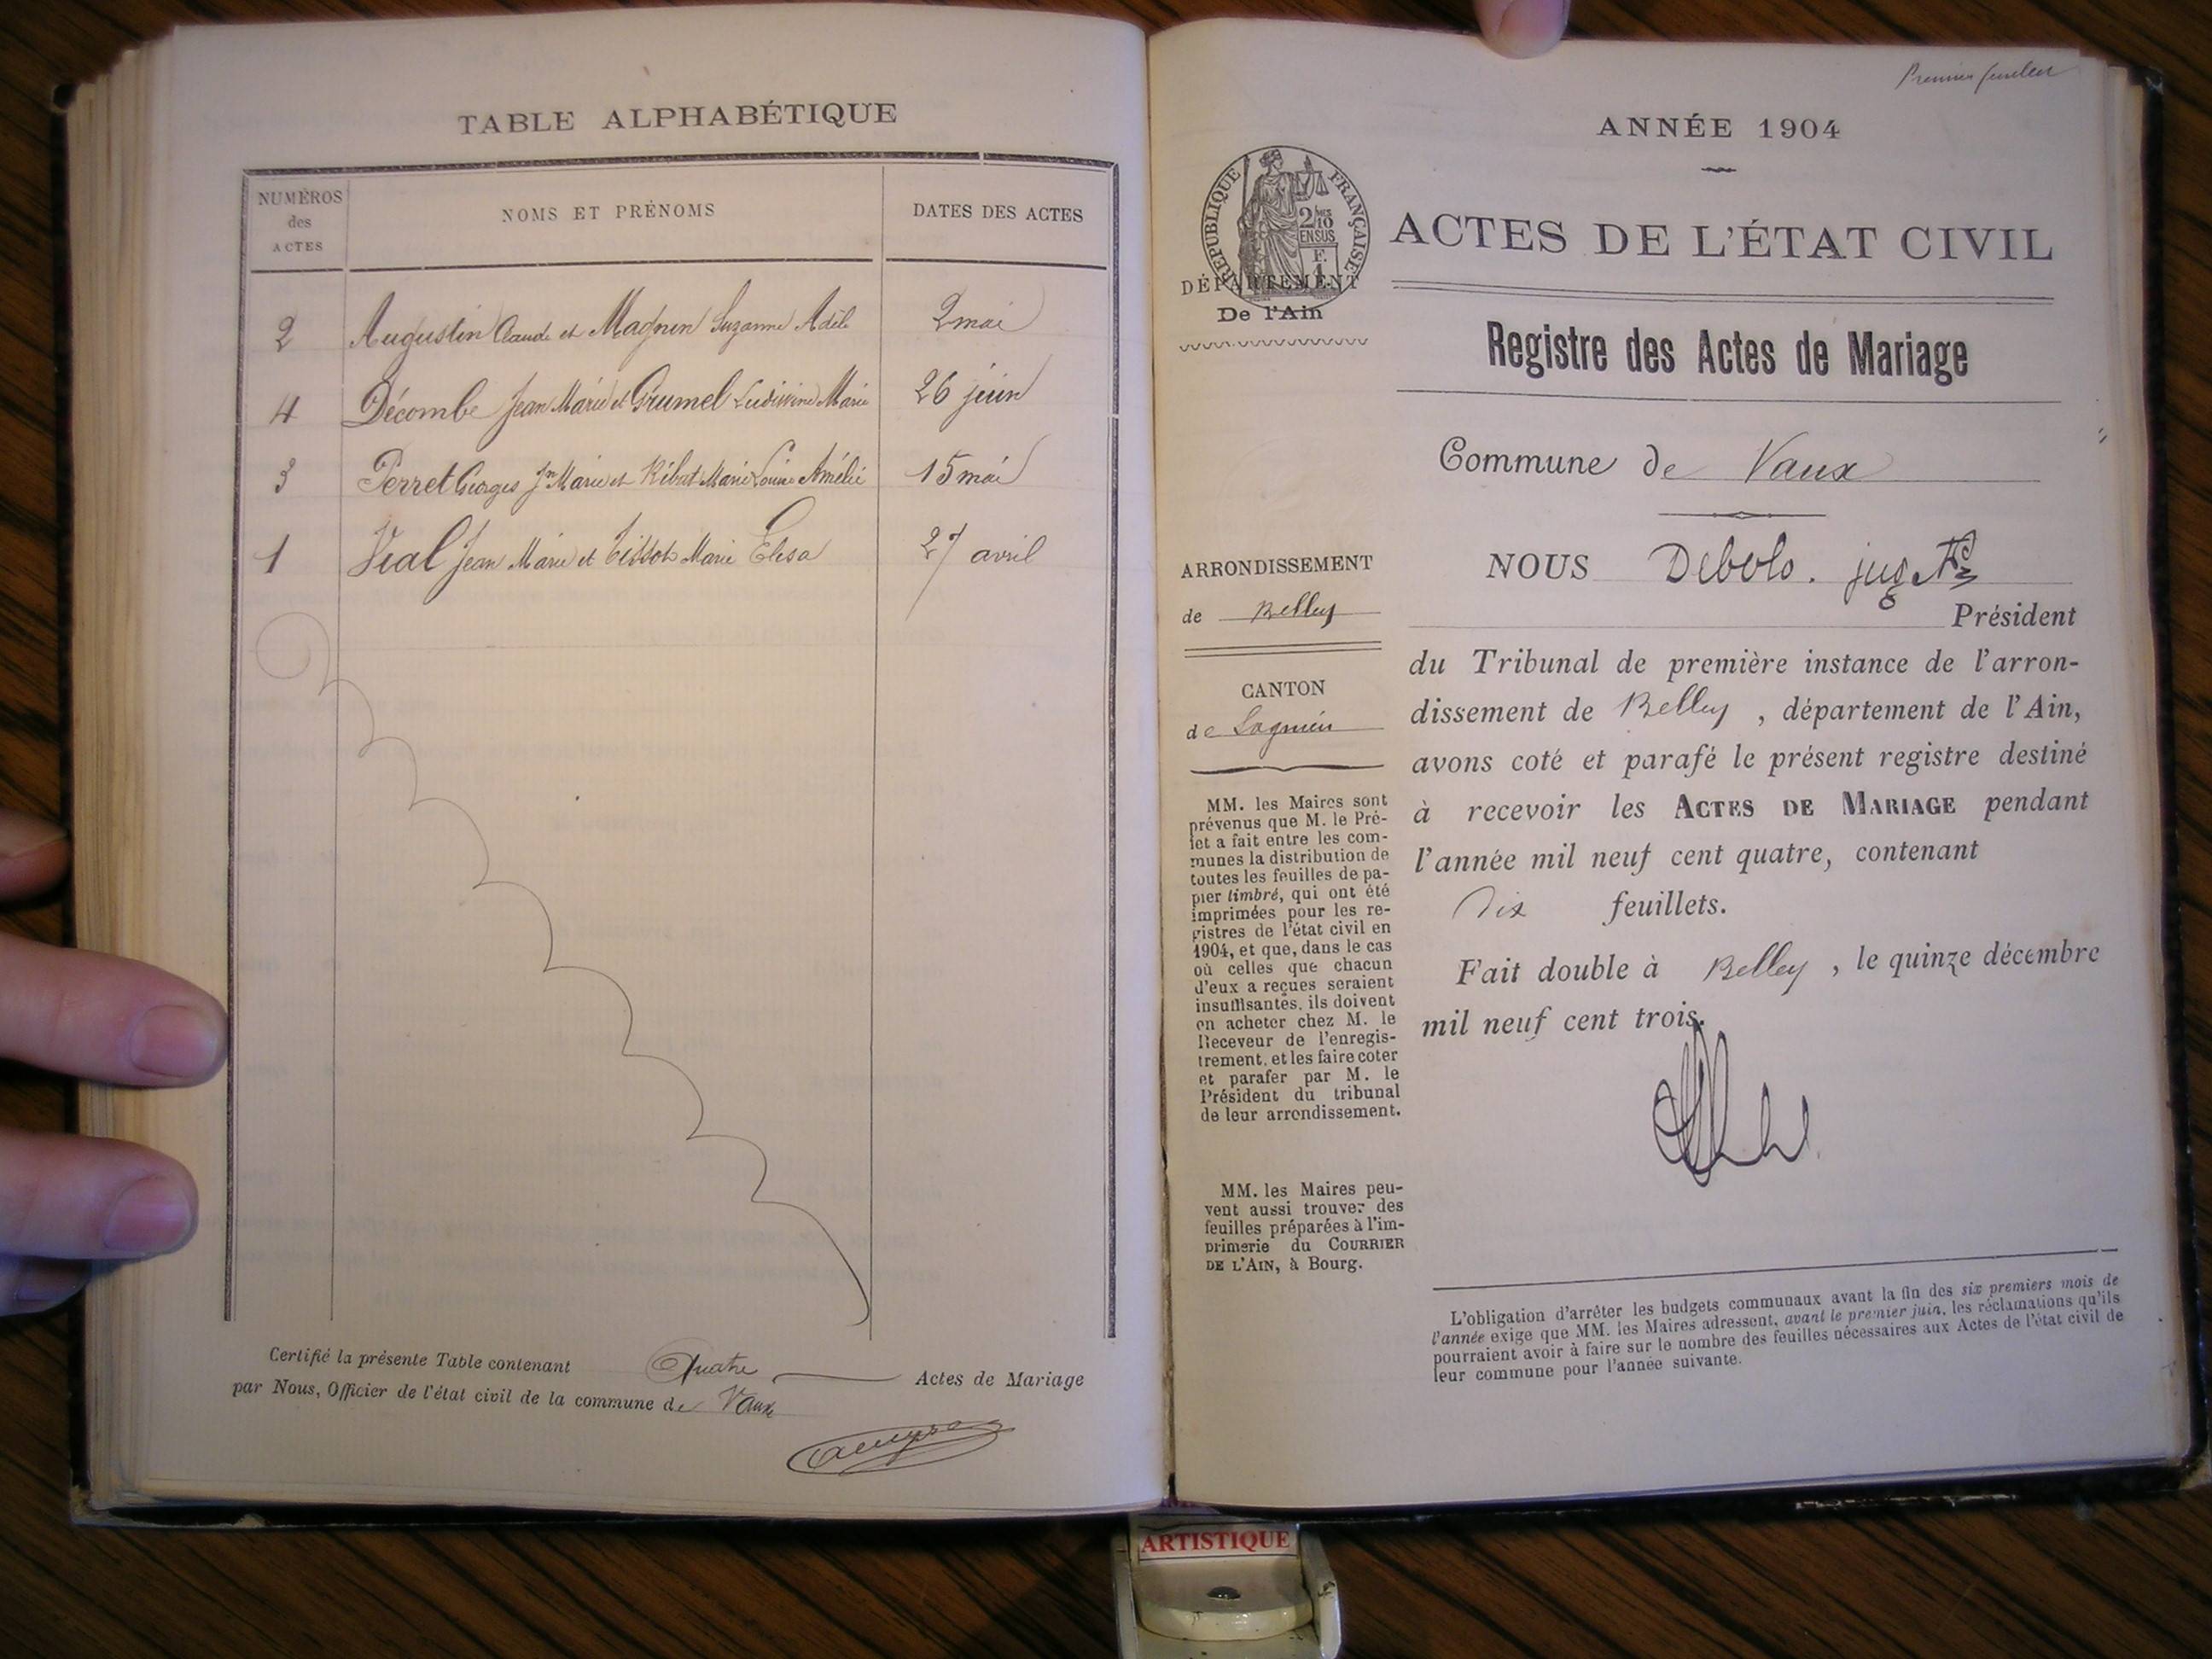 TABLE ALPHABÉTIQUE
NUMÉROS
des
ACTES
NOMS ET PRÉNOMS
DATES DES ACTES
2 Augustin Claude et Magnin Suzanne Adèle 2 mai
4 Décombe Jean Marie et Grumel Ludivine Marie 26 juin
3 Perret Georges Jn Marie et Ribat Marie Louise Amélie 15 mai
1 Vial Jean Marie et Tissot Marie Elisa 27 avril
Certifié la présente Table contenant Quatre Actes de Mariage
par Nous, Officier de l'état civil de la commune de Vaux
Premier feuillet
ANNÉE 1904
RÉPUBLIQUE FRANÇAISE
2/10
EN SUS
F.
1
DÉPARTEMENT
De l'Ain
ACTES DE L'ÉTAT CIVIL
Registre des Actes de Mariage
Commune de Vaux
ARRONDISSEMENT
de Belley
CANTON
de Lagnieu
MM. les Maires sont
prévenus que M. le Pré-
fet a fait entre les com-
munes la distribution de
toutes les feuilles de pa-
pier timbré, qui ont été
imprimées pour les re-
gistres de l'état civil en
1904, et que, dans le cas
où celles que chacun
d'eux a reçues seraient
insuffisantes, ils doivent
en acheter chez M. le
Receveur de l'enregis-
trement, et les faire coter
et parafer par M. le
Président du tribunal
de leur arrondissement.
MM. les Maires peu-
vent aussi trouver des
feuilles préparées à l'im-
primerie du COURRIER
DE L'AIN, à Bourg.
NOUS Debolo. jug
Président
du Tribunal de première instance de l'arron-
dissement de Belley, département de l'Ain,
avons coté et parafé le présent registre destiné
à recevoir les ACTES DE MARIAGE pendant
l'année mil neuf cent quatre, contenant
Dix feuillets.
Fait double à Belley, le quinze décembre
mil neuf cent trois.
L'obligation d'arrêter les budgets communaux avant la fin des six premiers mois de
l'année exige que MM. les Maires adressent, avant le premier juin, les réclamations qu'ils
pourraient avoir à faire sur le nombre des feuilles nécessaires aux Actes de l'état civil de
leur commune pour l'année suivante.
ARTISTIQUE